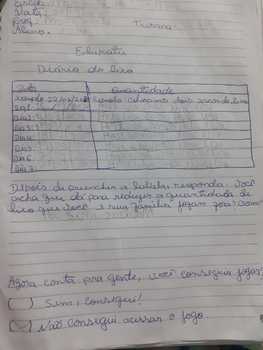 Data:
Prof:
Turma:
Aluno:
Diário do lixo
Data Quantidade
Exemplo 22/03/
Dia 1:
Dia 2:
Dia 3:
Dia 4
Dia 5
Dia 6
Dia 7
Depois de preencher a tabela, responda: Você
acha que dá para reduzir a quantidade de
lixo que você e sua família jogam fora? Como?
Agora conta pra gente, você conseguiu jogar?
( ) Sim, consegui!
( ) Não consegui acessar o jogo.